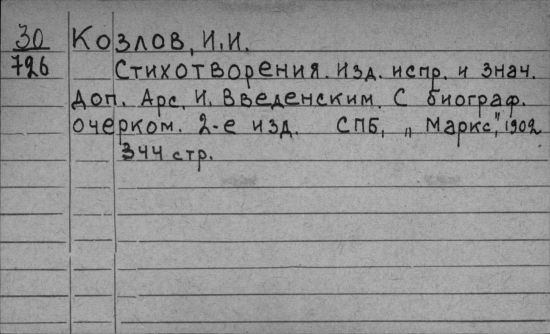 30 Козлов, И.И.
726 Стихотворения. Изд. испр. и знач.
доп. Арс. И. Введенским. С биограф.
очерком. 2-е изд. СПБ, „Маркс", 1902
344 стр.